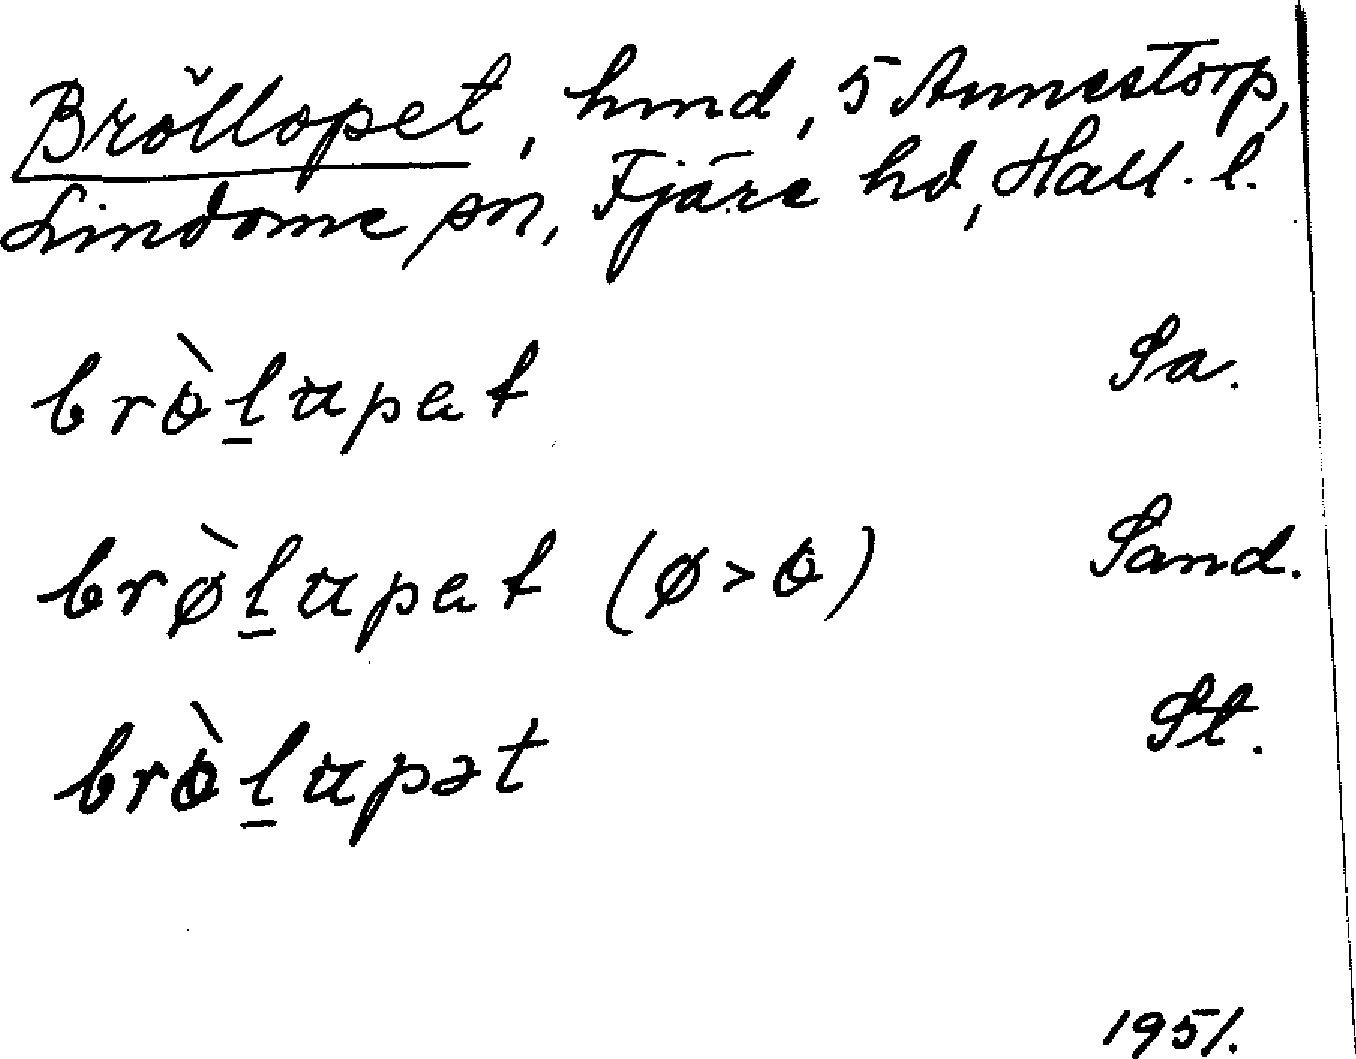 Bröllopet, hmd, 5 Annestorp,
Lindome sn, Fjäre hd, Hall. l.
brɵ̀l̲upet Sa.
brø̀l̲upet (ø>ɵ) Sand.
brɵ̀l̲upət St.
1951.